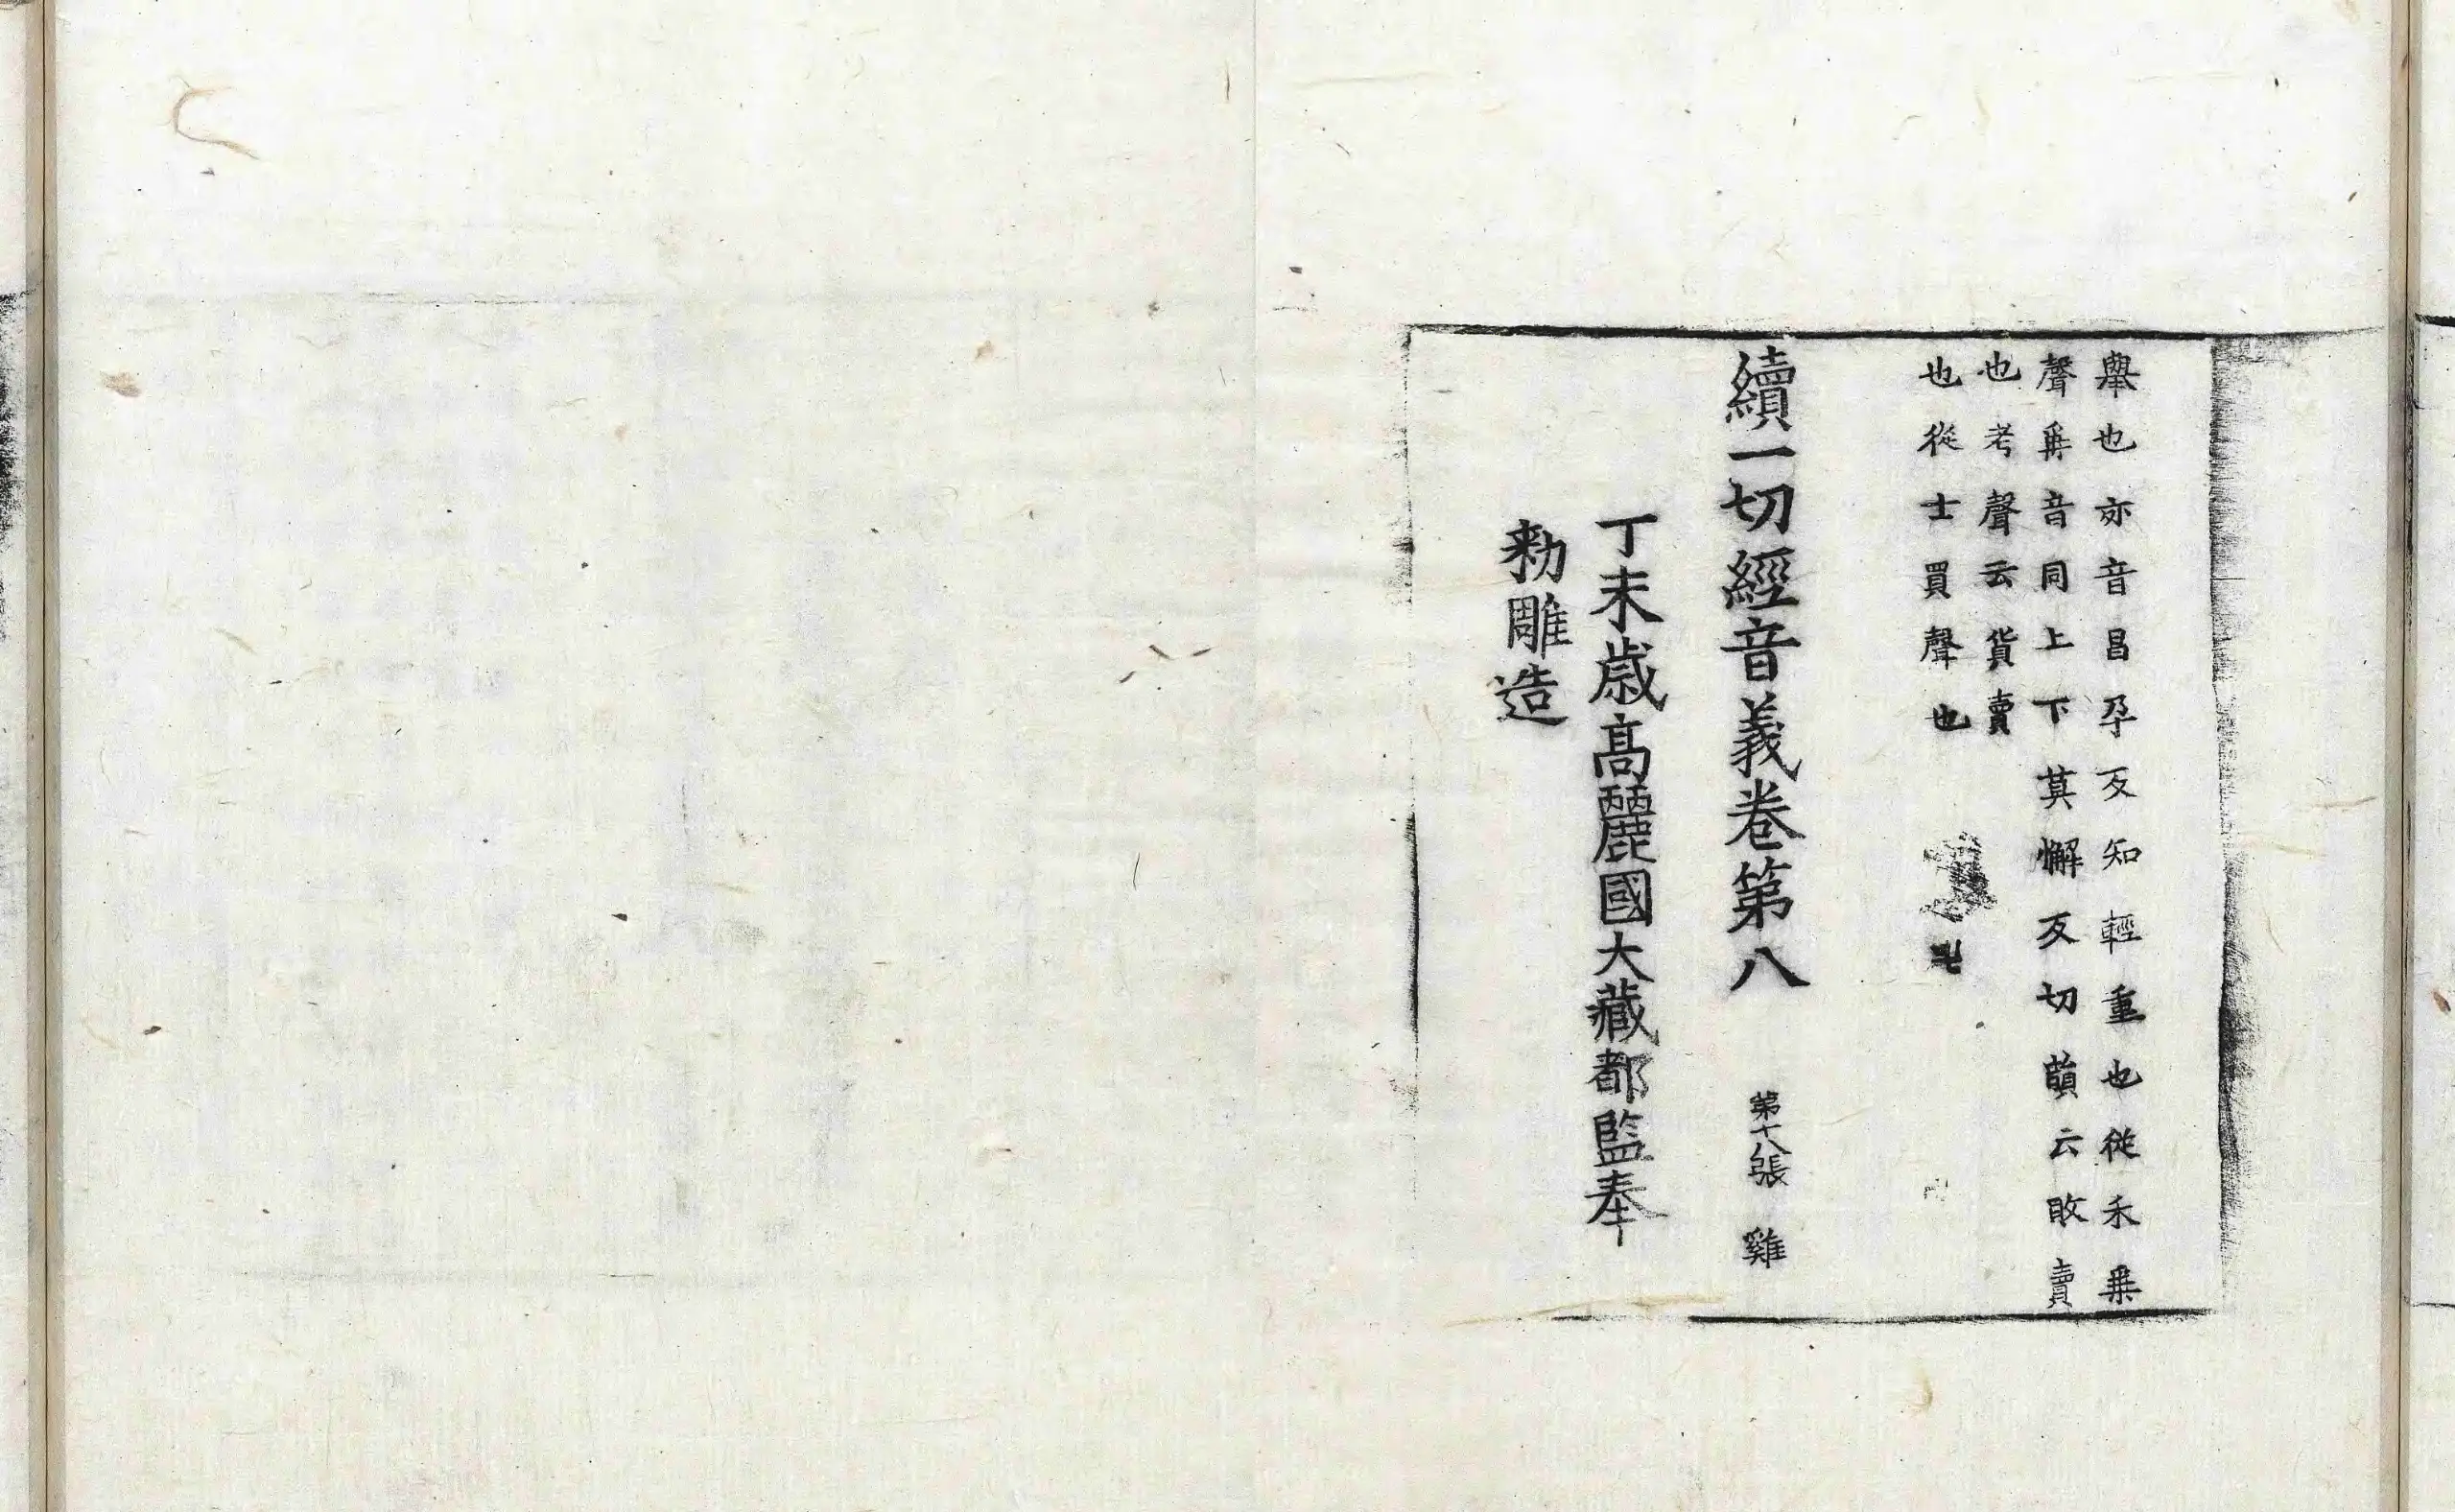 舉也亦音昌孕反知輕重也從禾乗
聲乗音同上下莫懈反切韻云敗賣
也考聲云貨賣
也從士買聲也
續一切經音義卷第八
第十八張 雞
丁未歲高麗國大藏都監奉
勑雕造